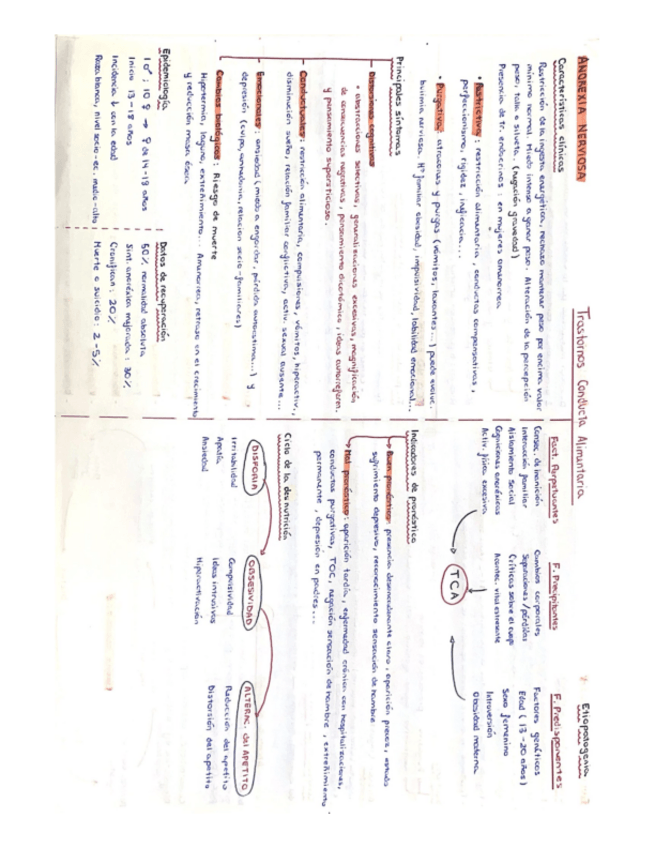 Trastornos Conducta Alimentaria
ANOREXIA NERVIOSA
Características clínicas
Restricción de la ingesta energética, rechazo mantener peso por encima valor
mínimo normal. Miedo intenso a ganar peso. Alteración de la percepción
peso, talla o silueta. (negación gravedad)
Presencia de tr. endocrinos: en mujeres amenorrea
• Restrictiva: restricción alimentaria, conductas compensativas,
perfeccionismo, rigidez, ineficacia...
• Purgativa: atracones y purgas (vómitos, laxantes...) puede evoluc.
bulimia nerviosa. Hª familiar obesidad, impulsividad, labilidad emocional...
Principales síntomas
- Distorsiones cognitivas
• abstracciones selectivas, generalizaciones excesivas, magnificación
de consecuencias negativas, pensamiento dicotómico, ideas autorreferen.
y pensamiento supersticioso.
- Conductuales: restricción alimentaria, compulsiones, vómitos, hiperactiv.,
disminución sueño, relación familiar conflictiva, activ. sexual ausente...
- Emocionales: ansiedad (miedo a engordar, pérdida autoestima...) y
depresión (culpa, anhedonia, relación socio-familiares)
Cambios biológicos: Riesgo de muerte
Hipotermia, lanugo, extreñimiento... Amenorrea, retraso en el crecimiento
y reducción masa ósea
Epidemiología
1♂ : 10♀ → ♀ de 14-18 años
Inicio 13-18 años
Incidencia ↓ con la edad
Raza blanca, nivel socio-ec. medio-alto
Datos de recuperación
50% normalidad absoluta
Sint. anoréxica mejorada: 30%
Cronifican: 20%
Muerte o suicidio: 2-5%
Etiopatogenia
Fact. Perpetuantes
Consec. de inanición
Interacción familiar
Aislamiento social
Cogniciones anoréxicas
Activ. física excesiva
F. Precipitantes
Cambios corporales
Separaciones / pérdidas
Críticas sobre el cuerpo
Acontec. vital estresante
F. Predisponentes
Factores genéticos
Edad (13-20 años)
Sexo femenino
Introversión
Obesidad materna
TCA
Indicadores de pronóstico
→ Buen pronóstico: presencia desencadenante claro, aparición precoz, estado
sufrimiento depresivo, reconocimiento sensación de hambre
→ Mal pronóstico: aparición tardía, enfermedad crónica con hospitalizaciones,
conductas purgativas, TOC, negación sensación de hambre, extreñimiento
permanente, depresión en padres...
Ciclo de la desnutrición
DISFORIA
Irritabilidad
Apatía
Ansiedad
OBSESIVIDAD
Compulsividad
Ideas intrusivas
Hiperactivación
ALTERAC. del APETITO
Reducción del apetito
Distorsión del apetito